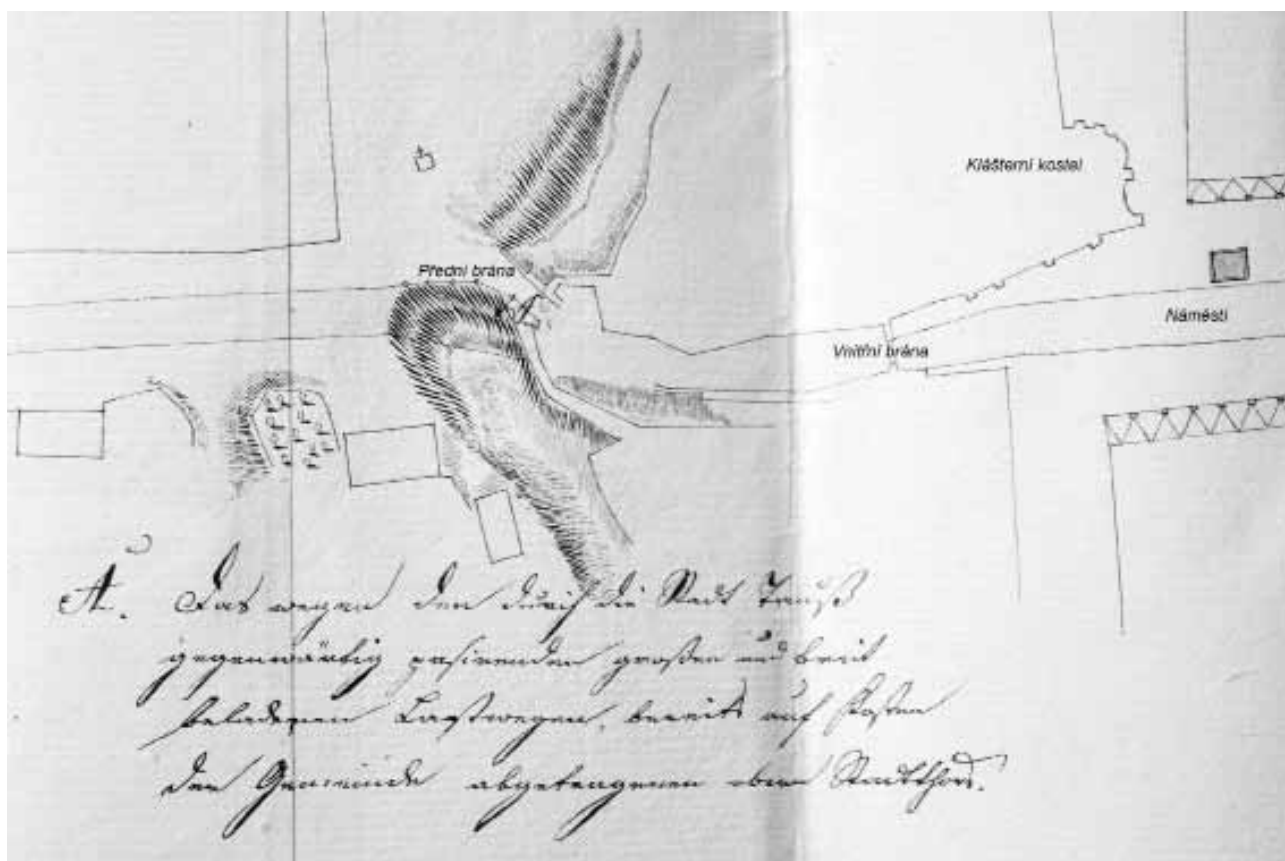 Klášterní kostel
Přední brána
Náměstí
Vnitřní brána
A. Das wegen den durch die Stadt Tauß
gegenwärtig pasirenden großen und breit
beladenen Lastwegen, bereits auf Kosten
der Gemeinde abgetragenen obern Stadtthors.